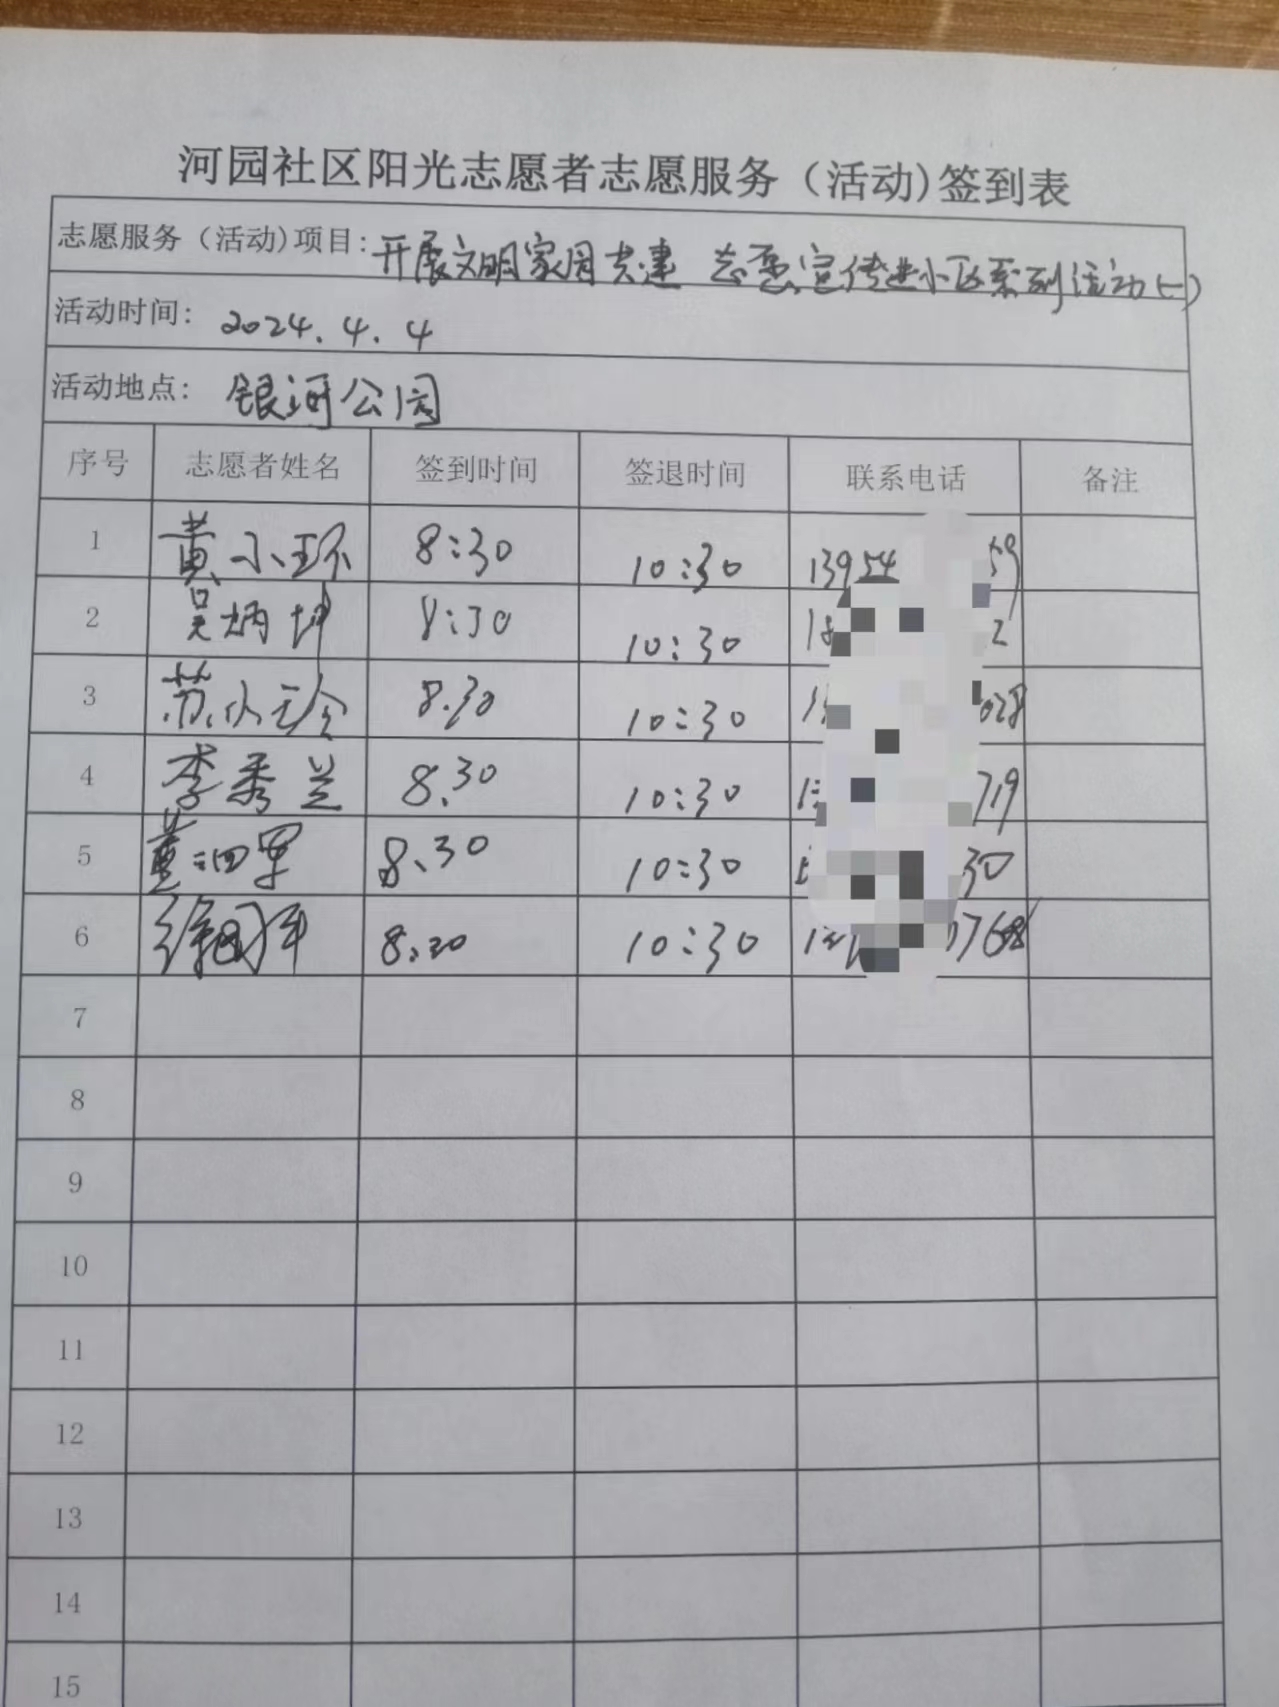 河园社区阳光志愿者志愿服务（活动)签到表
志愿服务（活动)项目: 开展文明家园共建 志愿宣传进小区系列活动(一)
活动时间: 2024.4.4
活动地点: 银河公园
序号 志愿者姓名 签到时间 签退时间 联系电话 备注
1 黄小环 8:30 10:30 13954 59
2 吴炳坤 8:30 10:30 18 2
3 苏小珍 8.30 10:30 1 028
4 李秀兰 8.30 10:30 1 719
5 董泗军 8.30 10:30 30
6 徐国军 8:30 10:30 1 0768
7
8
9
10
11
12
13
14
15